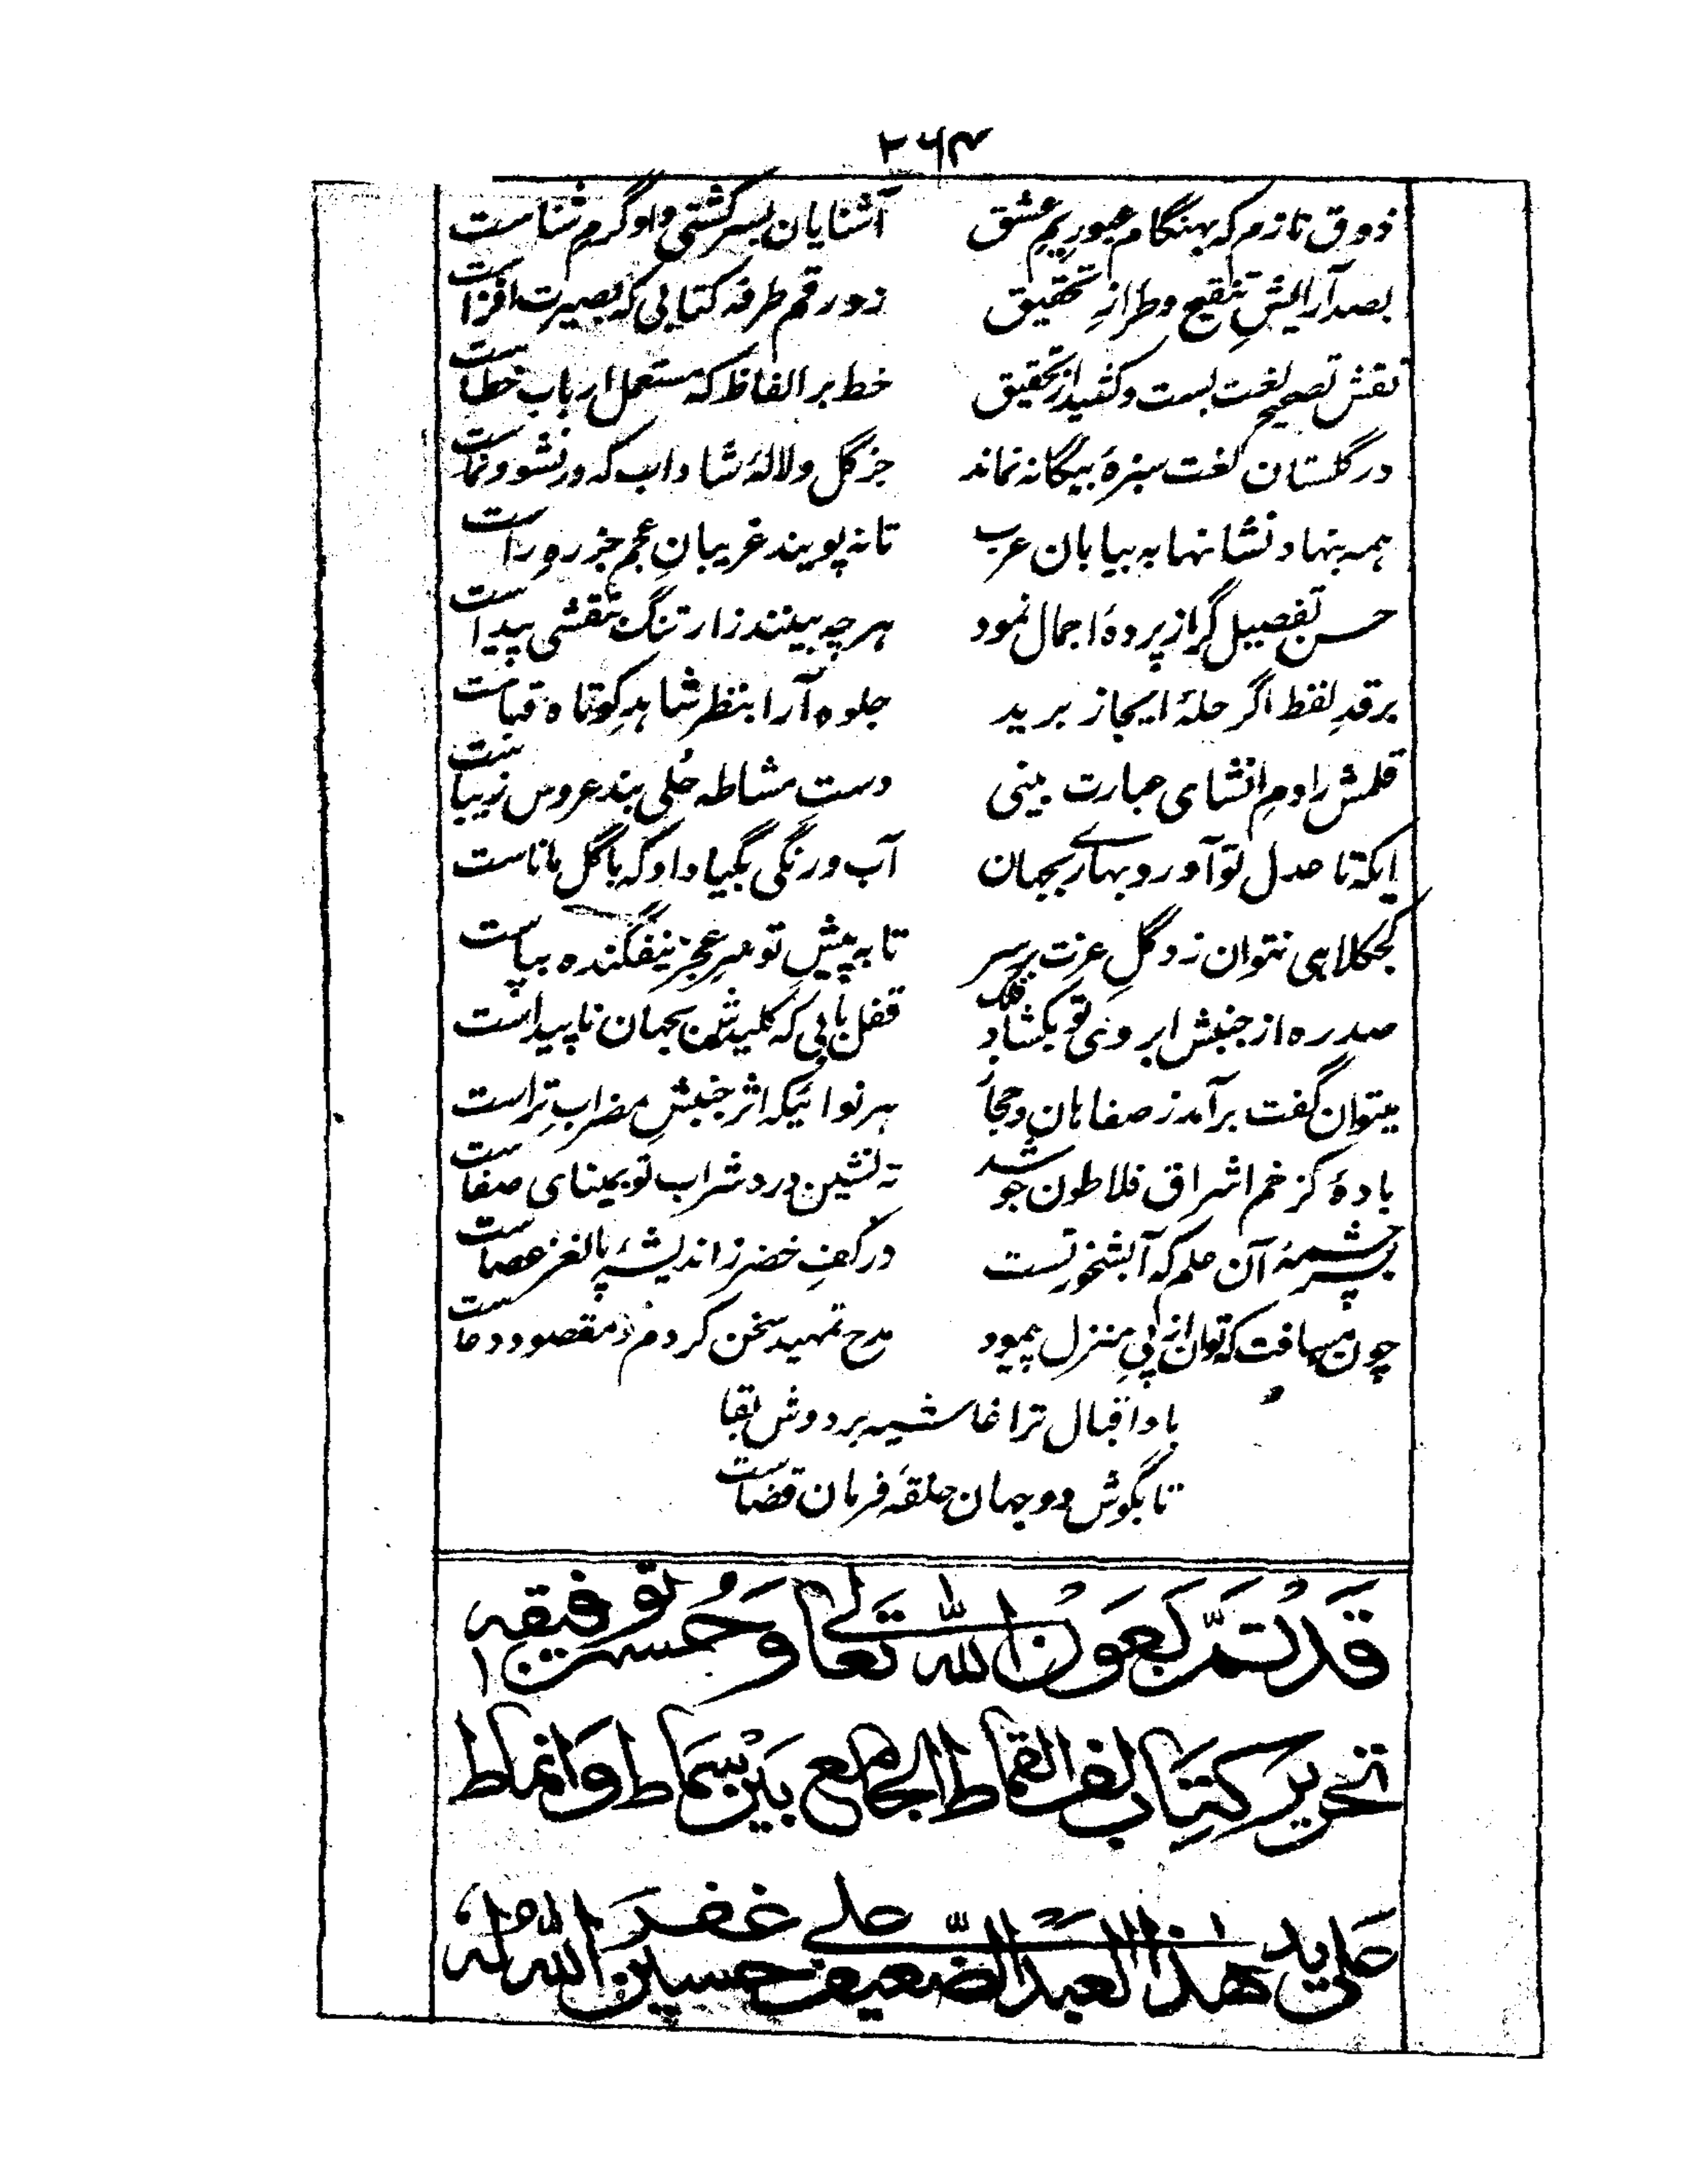 ۲۶۴
ذوق نازم که بهنگام عبور یم عشق آشنایان بسر کشتی و او گرم شناست
بصد آرایشِ تنقیح و طرازِ تحقیق زد رقم طرفه کتابی که بصیرت افزاست
نقش تصحیح لغت بست و کشید از تحقیق خط بر الفاظ که مستعمل ارباب خطاست
در گلستان لغت سبزهٔ بیگانه نماند جز گل و لالهٔ شاداب که در نشو و نماست
همه بنهاد نشانها به بیابان عرب تا نه پویند غریبانِ عجم جز ره راست
حسن تفصیل گر از پردهٔ اجمال نمود هر چه بینند ز ارتنگ نقشی پیداست
بر قدِ لفظ اگر حلهٔ ایجاز برید جلوه آرا بنظر شاهد کوتاه قباست
قلمش را دمِ انشای عبارت بینی دست مشاطه حُلی بند عروس زیباست
ایکه تا عدل تو آورد بهاری بجهان آب و رنگی بگیا داد که با گل ماناست
کجکلاهی نتوان زد گلِ عزت بر سر تا به پیشِ تو سرِ عجز نیفگنده بپاست
صد ره از جنبش ابروی تو بکشاد فلک قفل بابی که کلیدش بجهان ناپیداست
میتوان گفت برآمد ز صفاهان و حجاز هر نوائیکه اثر جنبشِ مضرابِ تراست
بادهٔ کز خم اشراق فلاطون جوشد ته نشین درد شراب تو بمینای صفاست
بر سر چشمهٔ آن علم که آبشخور تست در کفِ خضر ز اندیشهٔ پالغز عصاست
چون مسافت که توان از پیِ منزل پیمود مدح تمهید سخن کردم و مقصود دعاست
باد اقبال ترا غاشیه بر دوش بقا
تا بگوش دو جهان حلقهٔ فرمان قضاست
قَد تَمَّ بعَون الله تعالی وحُسن توفیقه
تحریر کتاب لف القماط الجامع بَین سِماط وَانماط
علی ید هذا العبد الضعیف حسین علی غفر الله له